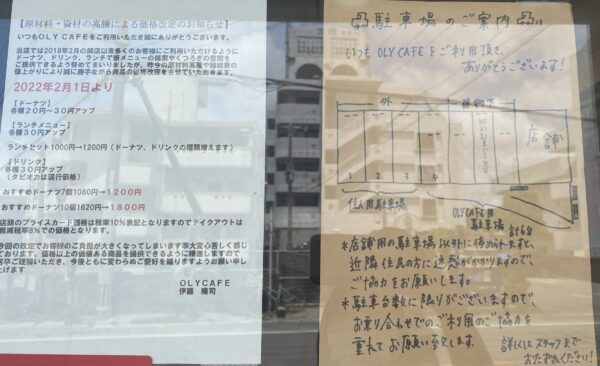 【原材料・資材の高騰による価格改定のお知らせ】
いつもOLY CAFEをご利用いただき誠にありがとうございます。
当店では2018年2月の開店以来多くのお客様にご利用いただけるように
ドーナツ、ドリンク、ランチで新メニューの提案やくつろぎの空間を
ご提供できるよう努めてまいりましたが、昨今の原材料高騰や諸経費の
値上がりにより誠に勝手ながら商品の価格改定をさせていただきます。
2022年2月1日より
【ドーナツ】
各種20円～30円アップ
【ランチメニュー】
各種30円アップ
ランチセット1000円→1200円（ドーナツ、ドリンクの種類増えます）
【ドリンク】
各種30円アップ
（タピオカは現行価格）
おすすめドーナツ7個1080円→1200円
おすすめドーナツ10個1620円→1800円
店舗のプライスカード価格は税率10%表記となりますのでテイクアウトは
軽減税率8%での価格となります。
今回の改定でお客様のご負担が大きくなってしまいます事大変心苦しく感じ
ております。価格以上の価値ある商品を提供できるように精進しますので
何卒ご理解いただき、今後ともに変わらぬご愛好を賜りますようお願い申し
上げます
OLYCAFE
伊藤 隆司
駐車場のご案内
いつも OLY CAFEをご利用頂き、
ありがとうございます!
外
店舗
1 2 3 4
住人用駐車場
OLY CAFE用
駐車場
計6台
*店舗用の駐車場以外に停められますと、
近隣住民の方に迷惑がかかりますので、
ご協力をお願いします。
*駐車台数に限りがございますので、
お乗り合わせでのご利用のご協力を
重ねてお願い致します。
詳しくはスタッフまで
おたずねください!